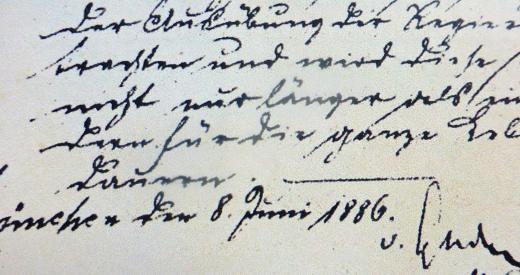 der Ausübung der Regie
trachten und wird diese
nicht nur länger als ein
dern für die ganze Leb
dauern.
München den 8. Juni 1886.
v.